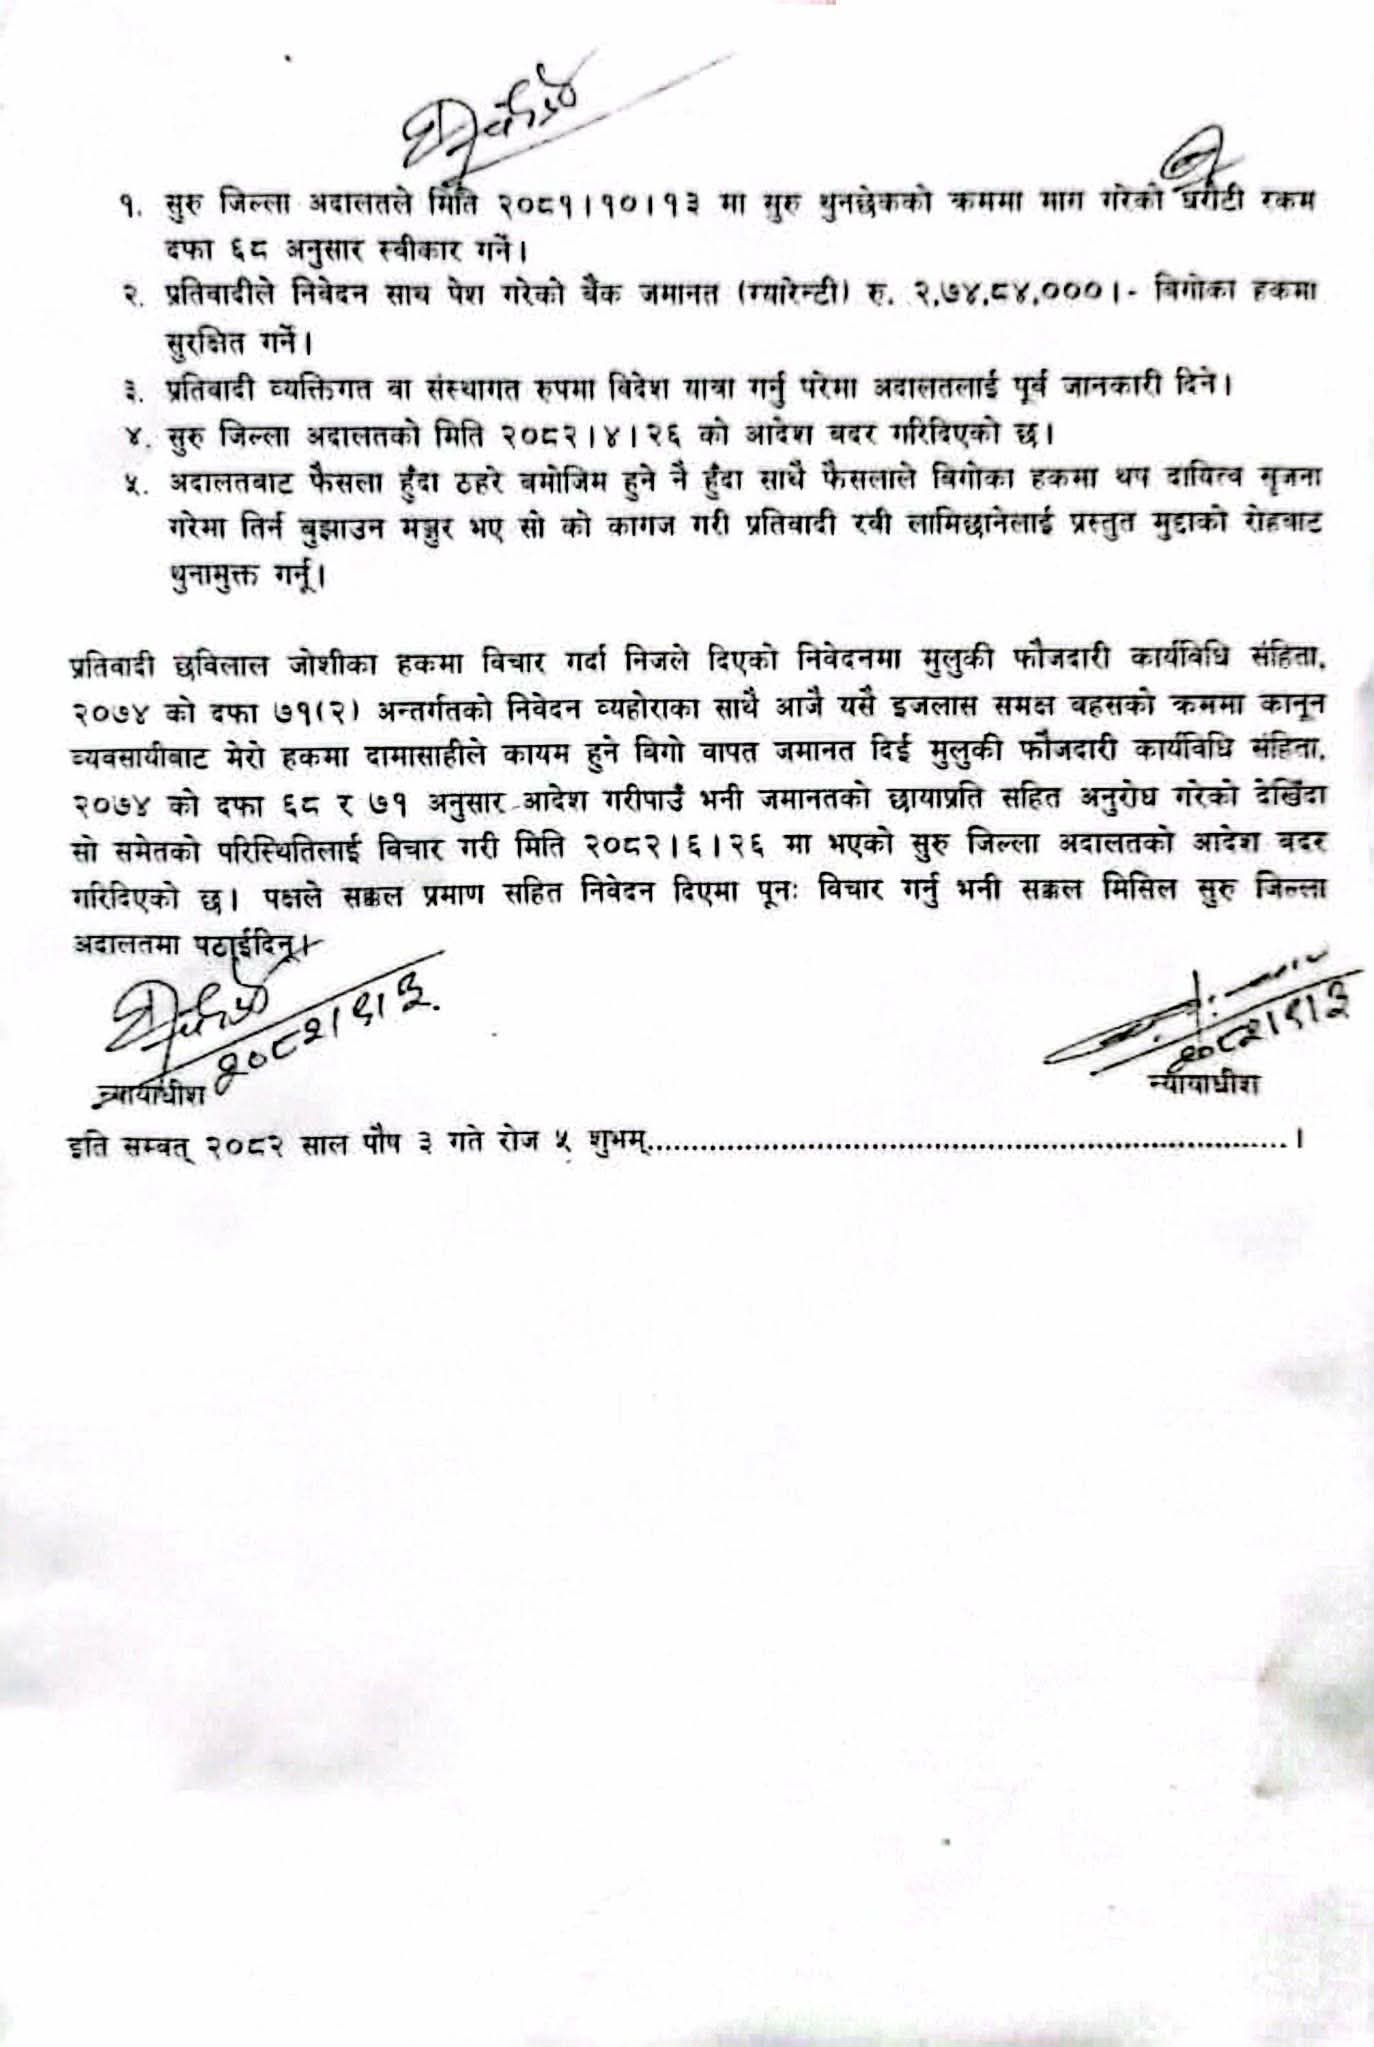 १. सुरु जिल्ला अदालतले मिति २०८१।१०।१३ मा सुरु थुनछेकको क्रममा माग गरेको धरौटी रकम
दफा ६८ अनुसार स्वीकार गर्ने।
२. प्रतिवादीले निवेदन साथ पेश गरेको बैंक जमानत (ग्यारेन्टी) रु. २,७४,८४,०००।- बिगोका हकमा
सुरक्षित गर्ने।
३. प्रतिवादी व्यक्तिगत वा संस्थागत रुपमा विदेश यात्रा गर्नु परेमा अदालतलाई पूर्व जानकारी दिने।
४. सुरु जिल्ला अदालतको मिति २०८२।४।२६ को आदेश बदर गरिदिएको छ।
५. अदालतबाट फैसला हुँदा ठहरे बमोजिम हुने नै हुँदा साथै फैसलाले बिगोका हकमा थप दायित्व सृजना
गरेमा तिर्न बुझाउन मञ्जुर भए सो को कागज गरी प्रतिवादी रवी लामिछानेलाई प्रस्तुत मुद्दाको रोहबाट
थुनामुक्त गर्नू।
प्रतिवादी छविलाल जोशीका हकमा विचार गर्दा निजले दिएको निवेदनमा मुलुकी फौजदारी कार्यविधि संहिता,
२०७४ को दफा ७१(२) अन्तर्गतको निवेदन व्यहोराका साथै आजै यसै इजलास समक्ष बहसको क्रममा कानून
व्यवसायीबाट मेरो हकमा दामासाहीले कायम हुने बिगो वापत जमानत दिई मुलुकी फौजदारी कार्यविधि संहिता,
२०७४ को दफा ६८ र ७१ अनुसार आदेश गरीपाउँ भनी जमानतको छायाप्रति सहित अनुरोध गरेको देखिँदा
सो समेतको परिस्थितिलाई विचार गरी मिति २०८२।६।२६ मा भएको सुरु जिल्ला अदालतको आदेश बदर
गरिदिएको छ। पक्षले सक्कल प्रमाण सहित निवेदन दिएमा पूनः विचार गर्नु भनी सक्कल मिसिल सुरु जिल्ला
अदालतमा पठाईदिनू।
२०८२।९।३ २०८२।९।३
न्यायाधीश न्यायाधीश
इति सम्बत् २०८२ साल पौष ३ गते रोज ५ शुभम्..................................................................।